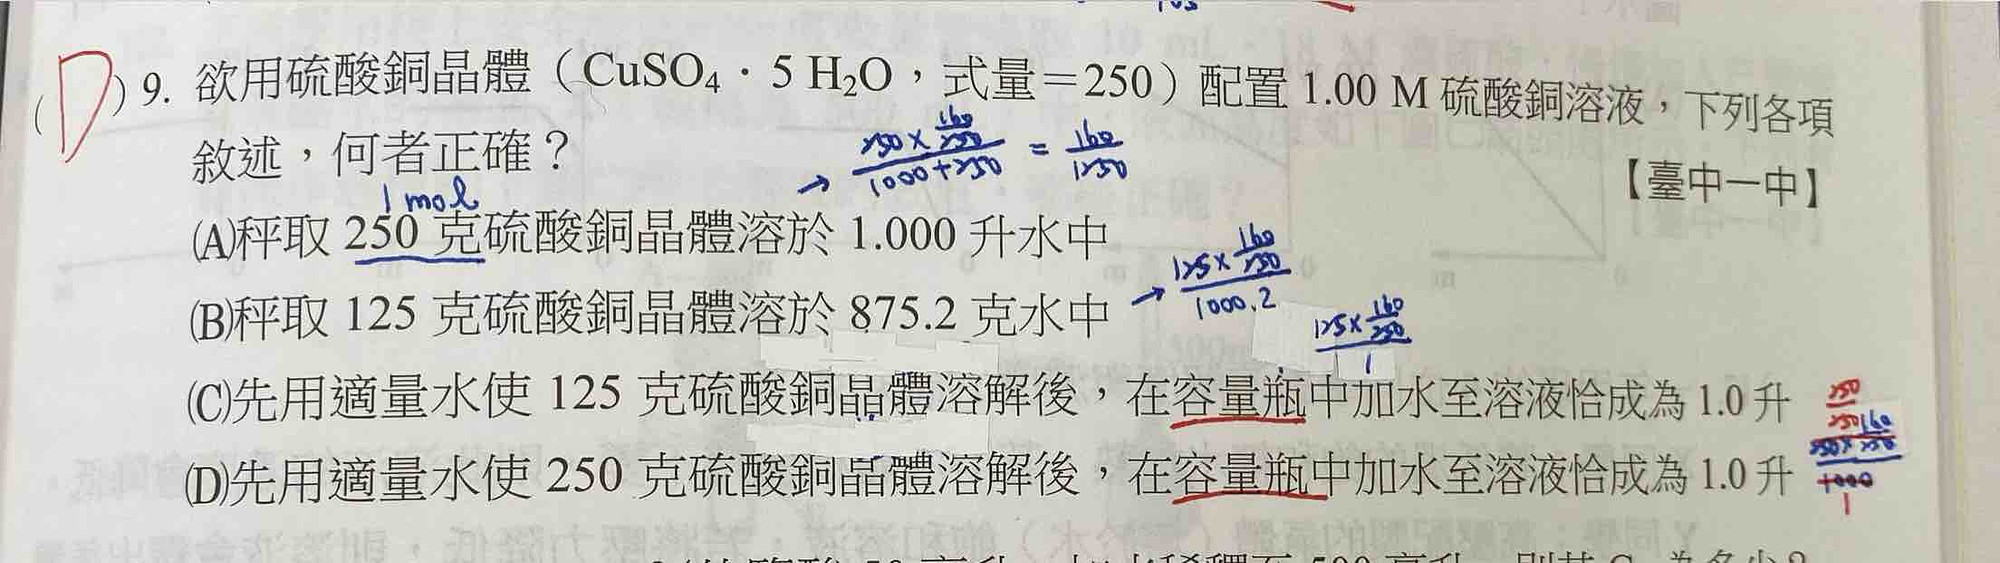 (D) 9. 欲用硫酸銅晶體（CuSO₄・5 H₂O，式量＝250）配置 1.00 M 硫酸銅溶液，下列各項
敘述，何者正確？
【臺中一中】
→ 250×160/250 / 1000+250 = 160/1250
1 mol
(A)秤取 250 克硫酸銅晶體溶於 1.000 升水中
(B)秤取 125 克硫酸銅晶體溶於 875.2 克水中
→ 125×160/250 / 1000.2
125×160/250 / 1
(C)先用適量水使 125 克硫酸銅晶體溶解後，在容量瓶中加水至溶液恰成為 1.0 升
(D)先用適量水使 250 克硫酸銅晶體溶解後，在容量瓶中加水至溶液恰成為 1.0 升